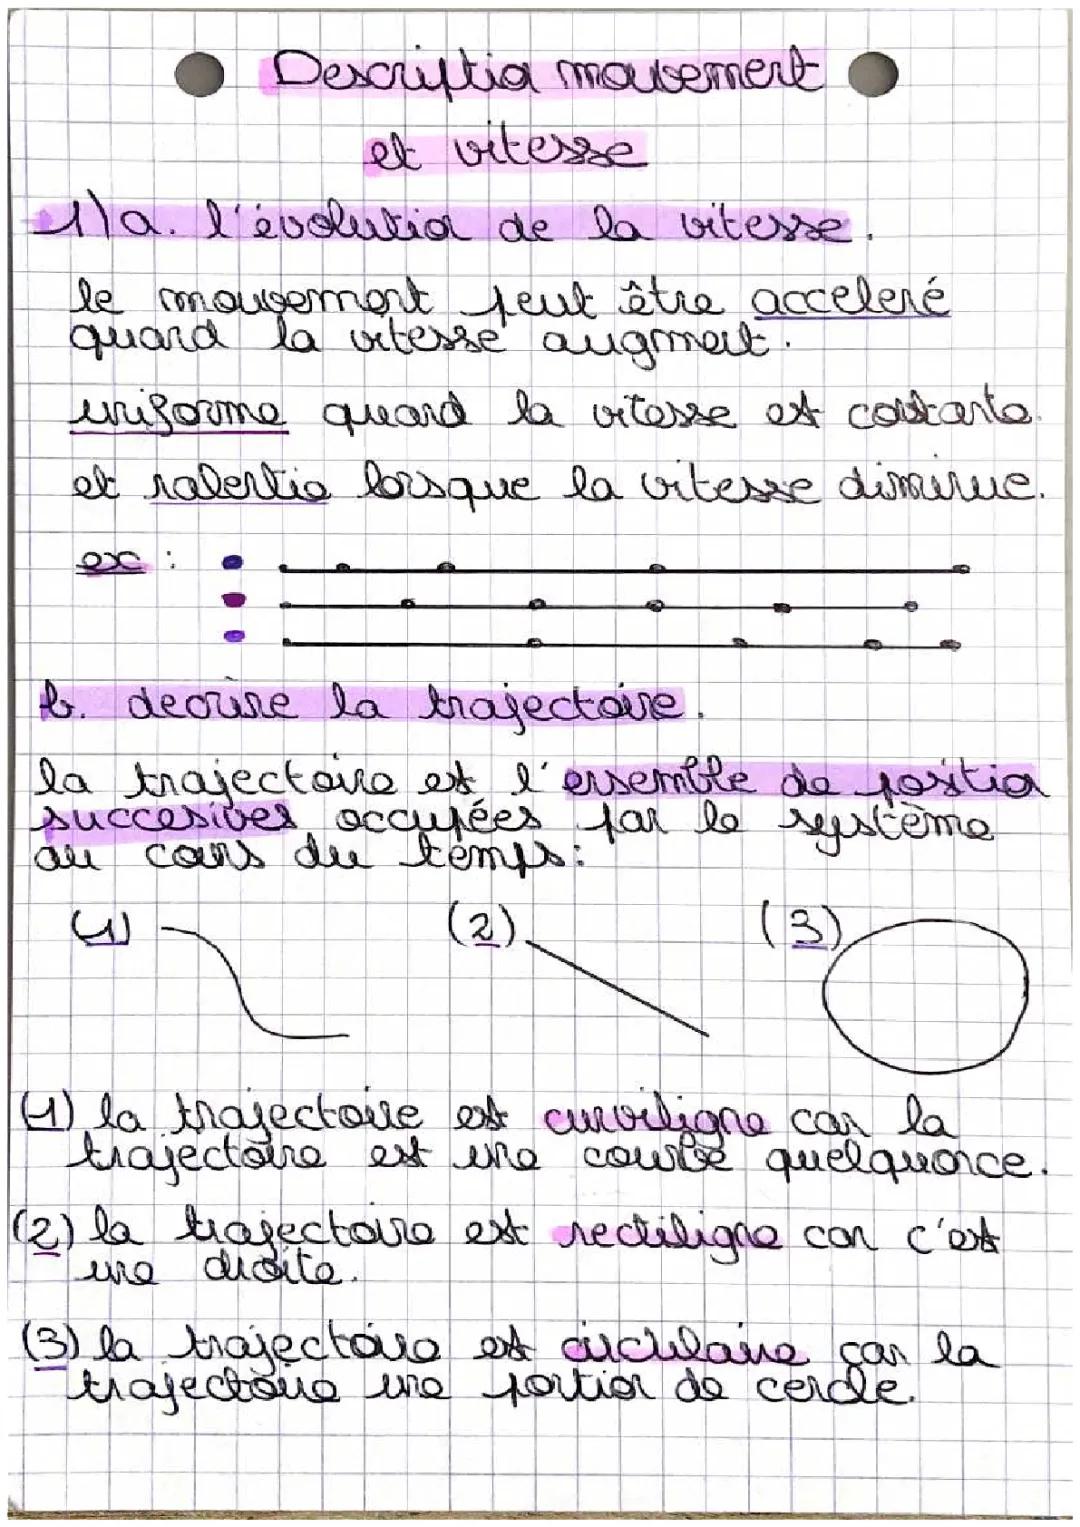 Description mouvement
et vitesse
1) a. l'évolution de la vitesse.
le mouvement peut être acceleré
quand la vitesse augment.
uniforme quand la vitesse est constante.
et ralentie lorsque la vitesse diminue.
ex :
b. decrire la trajectoire.
la trajectoire est l'ensemble de position
succesives occupées par le système
au cours du temps:
(1) (2) (3)
(1) la trajectoire est curviligne car la
trajectoire est une courbe quelquonce.
(2) la trajectoire est rectiligne car c'est
une droite.
(3) la trajectoire est circulaire car la
trajectoire une portion de cercle.